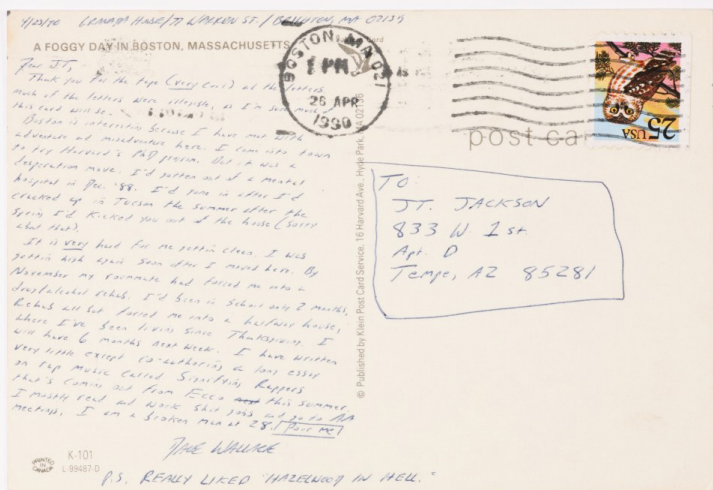 4/25/90 Granada House / 77 Warren St. / Brighton, MA 02135
A FOGGY DAY IN BOSTON, MASSACHUSETTS
Dear JT,
Thank you for the tape (very cool) and the letters.
much of the letters were illegible, as I'm sure much of
this card will be.
Boston is interesting because I have met with
adventure and misadventure here. I came into town
to try Harvard's PhD program. But it was a
desperation move. I'd gotten out of a mental
hospital in Dec. '88. I'd gone in after I'd
cracked up in Tucson the summer after the
Spring I'd kicked you out of the house (sorry
about that).
It is very hard for me gettin clean. I was
gettin high again soon after I moved here. By
November my roommate had forced me into a
drug/alcohol rehab. I'd been in school only 2 months.
Rehab all but forced me into a halfway house,
where I've been living since Thanksgiving. I
will have 6 months next week. I have written
very little except co-authoring a long essay
on rap music called Signifying Rappers
that's coming out from Ecco this summer.
I mostly read and work shit jobs and go to AA
meetings. I am a broken man at 28.
Dave Wallace
P.S. REALLY LIKED "HAZELWOOD IN HELL."
PRINTED IN CANADA
K-101
L-99487-D
© Published by Klein Post Card Service, 16 Harvard Ave., Hyde Park, MA 02136
BOSTON, MA 021
PM
26 APR
1990
post ca
25 USA
TO:
JT. JACKSON
833 W 1st
Apt. D
Tempe, AZ 85281